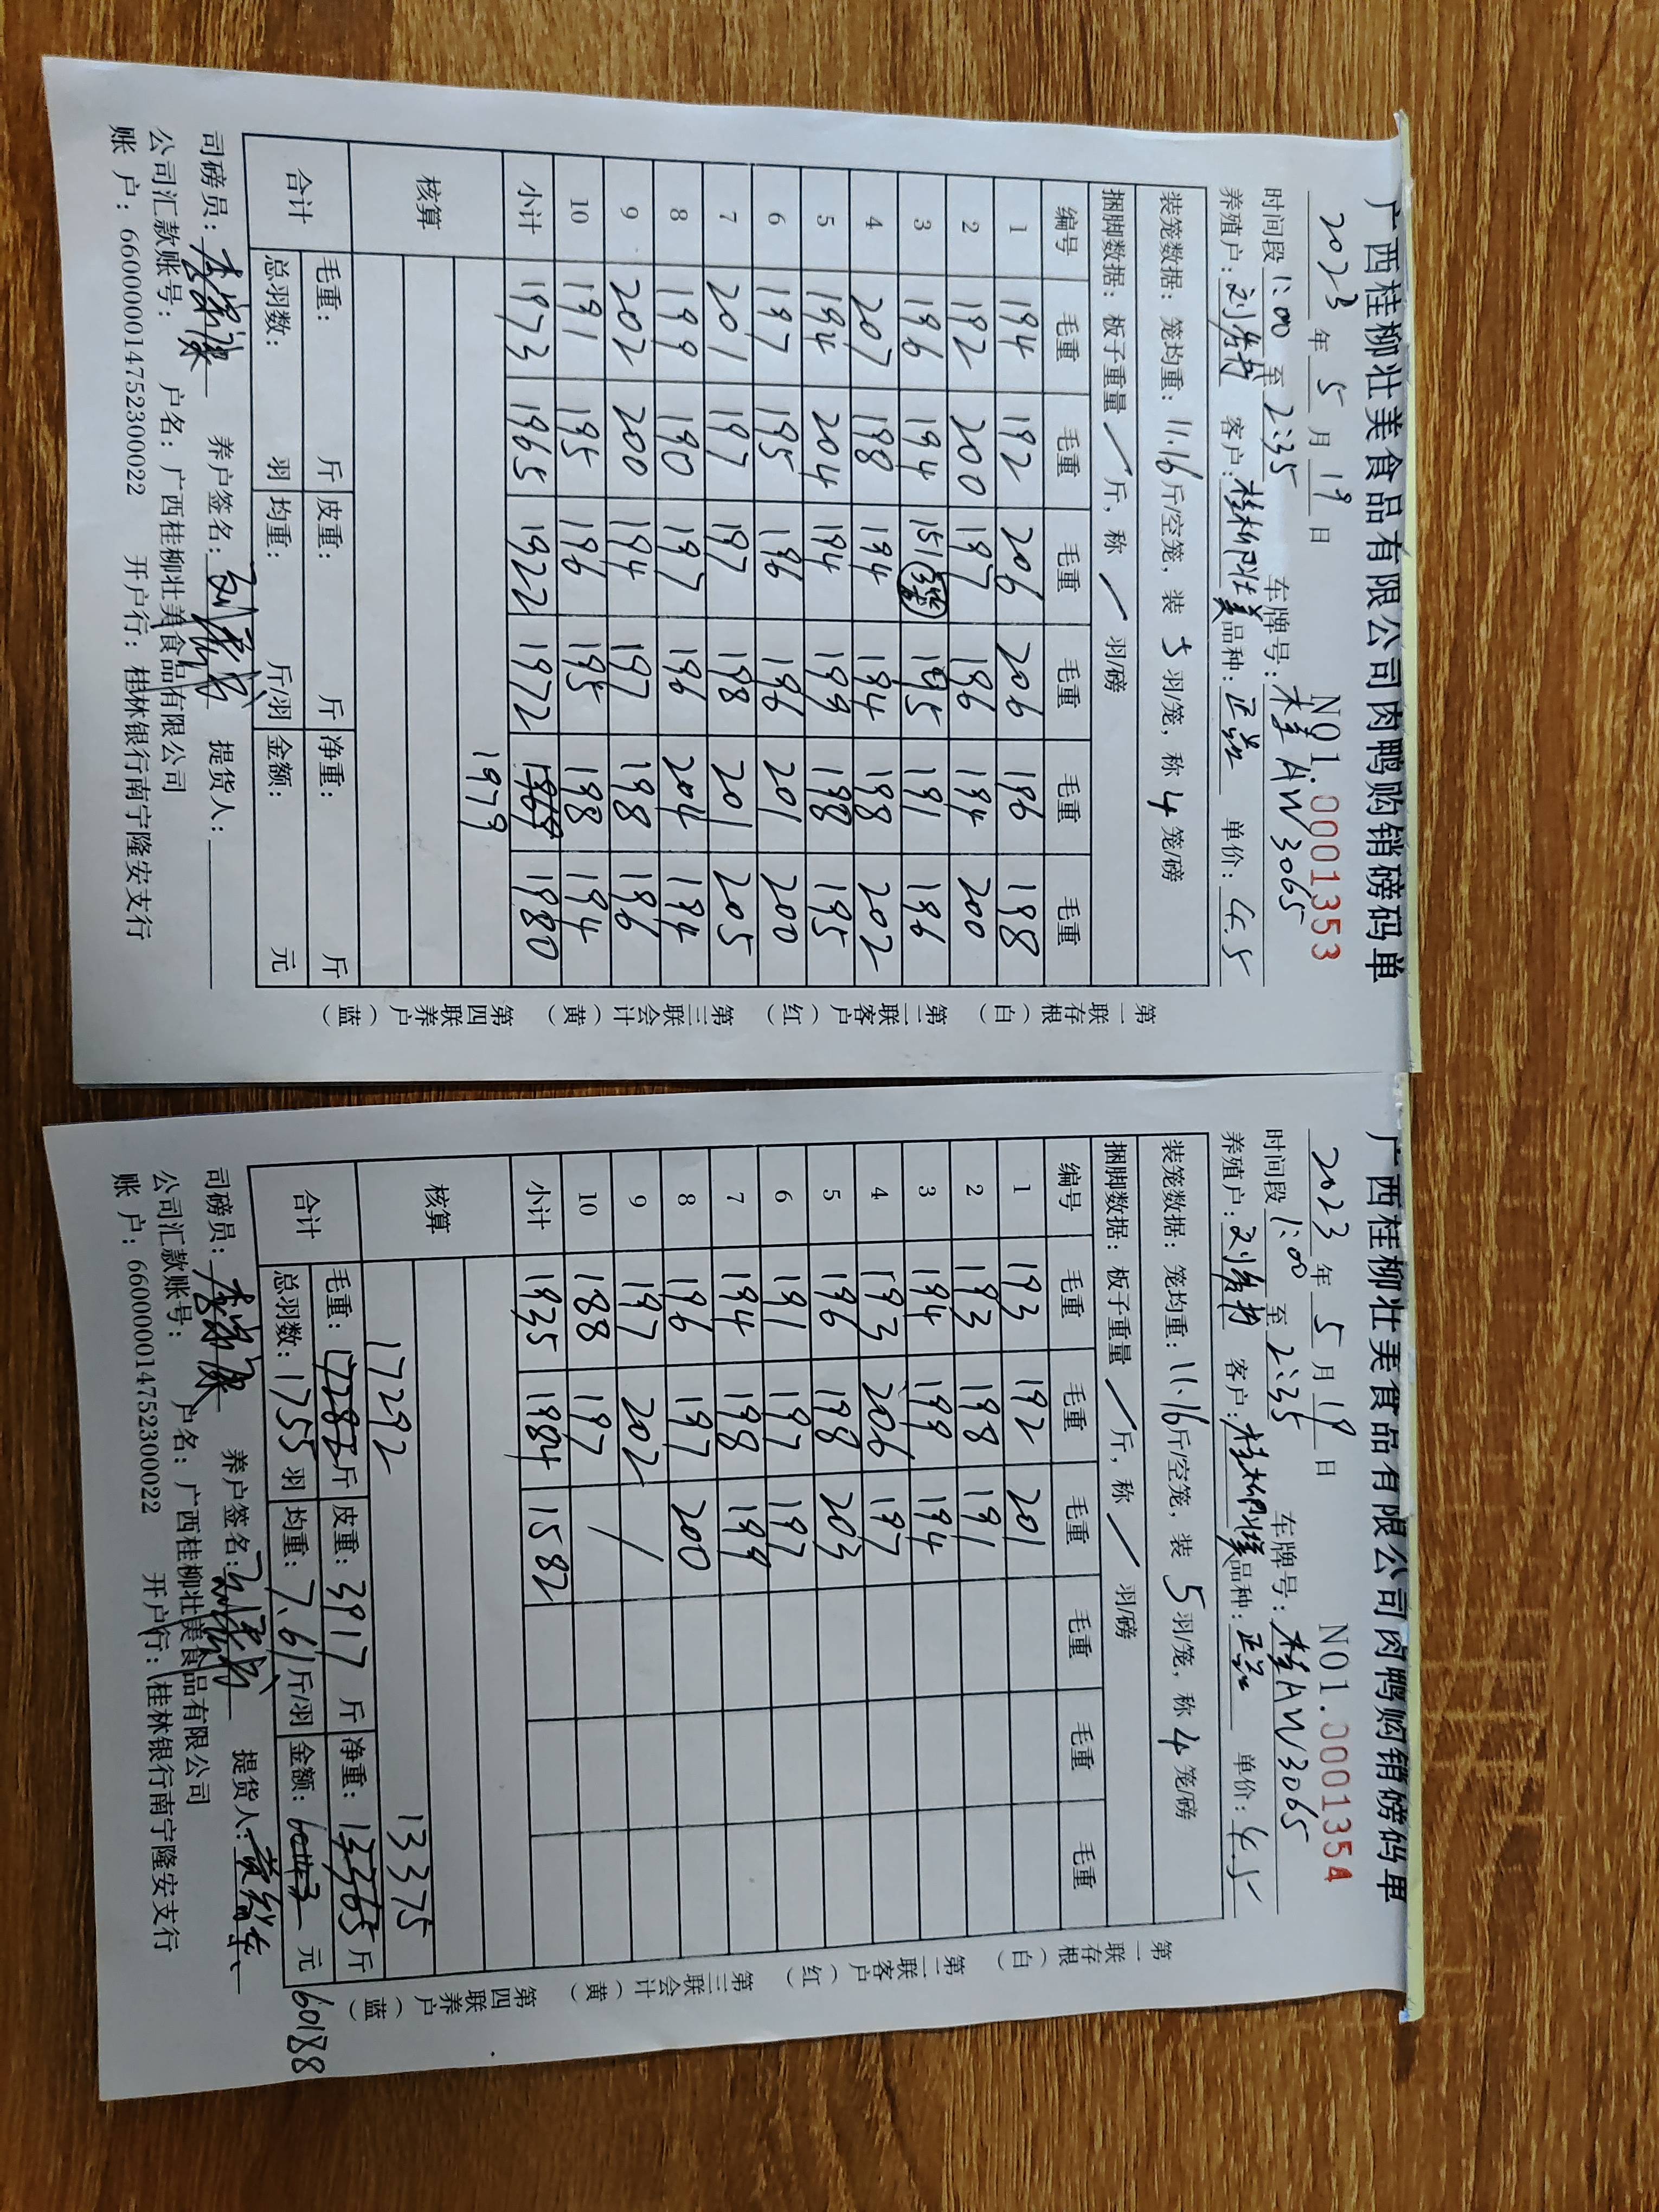 广西桂柳壮美食品有限公司肉鸭购销磅码单
NO1.0001353
2023年5月19日 车牌号:桂AW3065
时间段1:00至2:35
养殖户: 客户:桂柳壮美 品种: 单价:4.5
装笼数据:笼均重:11.16斤/空笼,装5羽/笼,称4笼/磅
捆脚数据:板子重量/斤,称/羽/磅
编号 毛重 毛重 毛重 毛重 毛重 毛重
1 194 192 206 206 196 198
2 192 200 197 196 194 200
3 196 194 151 195 191 196
4 207 198 194 194 198 202
5 194 204 194 199 198 195
6 197 195 196 196 201 200
7 201 197 197 198 201 205
8 199 190 197 196 204 194
9 202 200 194 197 198 196
10 191 195 196 195 198 194
小计 1973 1965 1922 1972 1980
1979
核算
合计 毛重: 斤 皮重: 斤 净重: 斤
总羽数: 羽 均重: 斤/羽 金额: 元
司磅员: 养户签名: 提货人:
公司汇款账号: 户名:广西桂柳壮美食品有限公司
账户:660000014752300022 开户行:桂林银行南宁隆安支行
第一联存根(白) 第二联客户(红) 第三联会计(黄) 第四联养户(蓝)
广西桂柳壮美食品有限公司肉鸭购销磅码单
NO1.0001354
2023年5月19日 车牌号:桂AW3065
时间段1:00至2:35
养殖户: 客户:桂柳壮美 品种: 单价:4.5
装笼数据:笼均重:11.16斤/空笼,装5羽/笼,称4笼/磅
捆脚数据:板子重量/斤,称/羽/磅
编号 毛重 毛重 毛重 毛重 毛重 毛重
1 193 192 201
2 193 198 191
3 194 199 194
4 193 206 197
5 196 198 203
6 191 197 197
7 194 198 199
8 196 197 200
9 197 202 /
10 188 197
小计 1935 1984 1582
核算
17292 13375
合计 毛重:17282斤 皮重:3917斤 净重:13365斤
总羽数:1755羽 均重:7.61斤/羽 金额: 元 60188
司磅员: 养户签名: 提货人:
公司汇款账号: 户名:广西桂柳壮美食品有限公司
账户:660000014752300022 开户行:桂林银行南宁隆安支行
第一联存根(白) 第二联客户(红) 第三联会计(黄) 第四联养户(蓝)